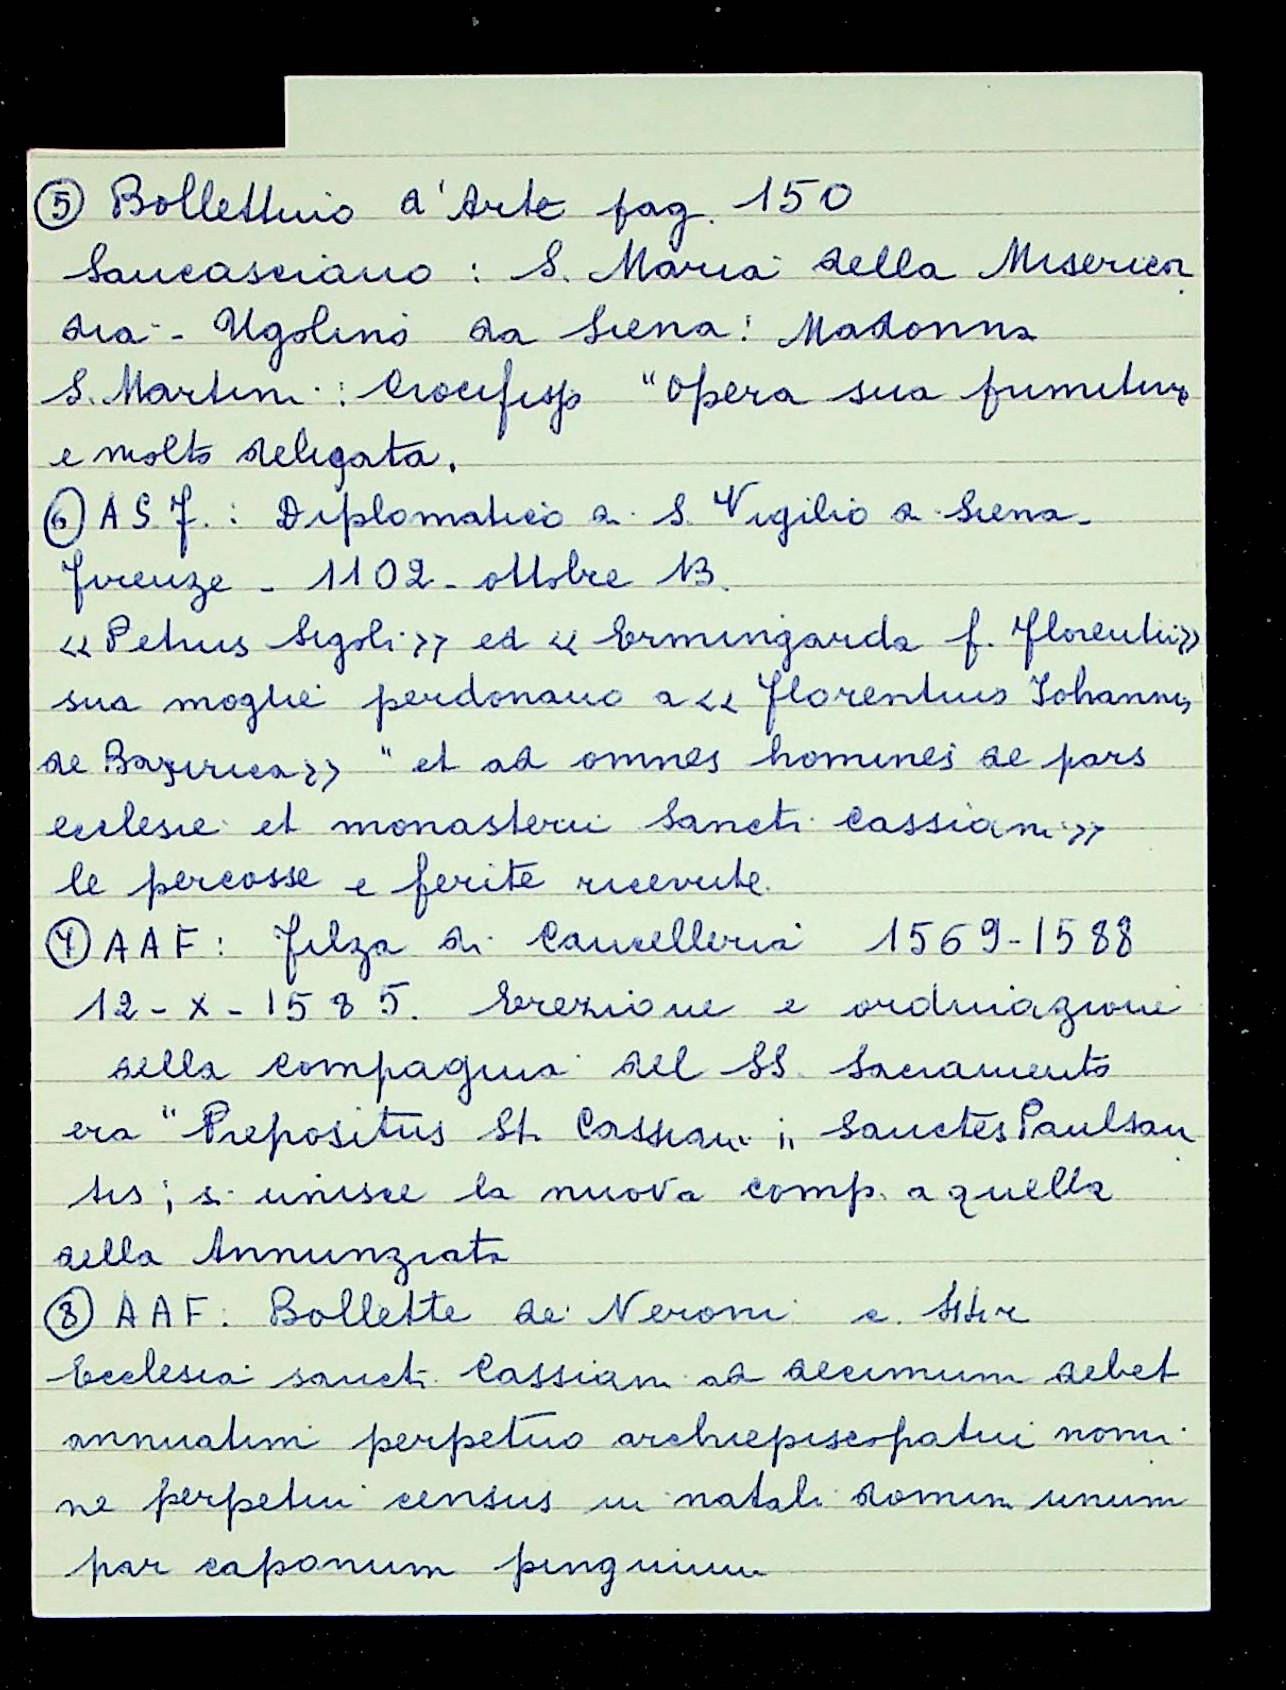 ⑤ Bollettino d'Arte pag. 150
Sancasciano: S. Maria della Misericor
dia - Ugolino da Siena: Madonna
S. Martini: Crocifisso "Opera sua primitiva
e molto deligata.
⑥ A S F.: Diplomatico di S. Vigilio di Siena.
Firenze - 1102 - ottobre 13.
«Petrus Sigoli» ed «Ermingarda f. Florentii»
sua moglie perdonano a «Florentino Iohannis
de Bazirica» "et ad omnes homines de pars
ecclesie et monasterii Sancti Cassiani»
le percosse e ferite ricevute.
⑦ AAF: Filza di Cancelleria 1569-1588
12-X-1585. Erezione e ordinazione
della Compagnia del SS. Sacramento
era "Prepositus St. Cassiani ;, Sanctes Paulsan
tis; si unisce la nuova comp. a quella
della Annunziata
⑧ AAF: Bollette de Neroni c.
Ecclesia sancti Cassiani ad decimum debet
annuatim perpetuo archiepiscopatui nomi
ne perpetui census in natali domini unum
par caponum pinguium